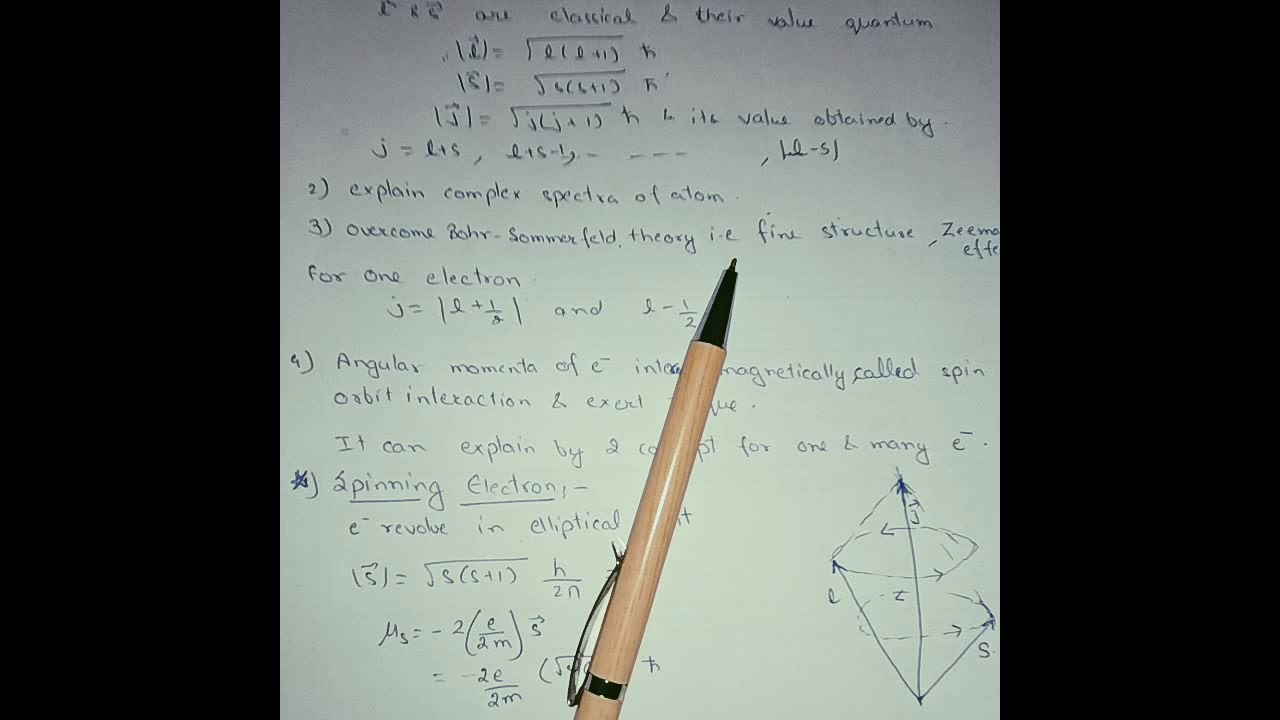 are classical & their value quantum
|l⃗| = √l(l+1) ħ
|s⃗| = √s(s+1) ħ
|j⃗| = √j(j+1) ħ & its value obtained by.
j = l+s, l+s-1, - - - - , |l-s|
2) explain complex spectra of atom.
3) overcome Bohr-Sommerfeld. theory i.e fine structure, Zeema
effe
for one electron
j = |l + 1/2| and l - 1/2
4) Angular momenta of e⁻ inter magnetically, called spin
orbit interaction & exert que.
It can explain by 2 co pt for one & many e⁻.
*) Spinning Electron,-
e⁻ revolve in elliptical t
|s⃗| = √s(s+1) h/2π
μs = -2(e/2m) s⃗
= -2e/2m (√ ħ
j⃗
l
z
S